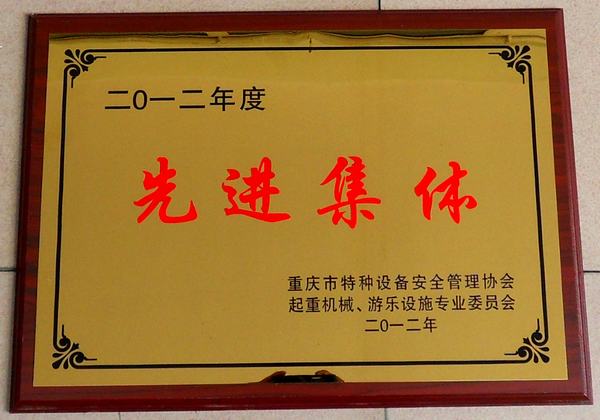 二〇一二年度
先进集体
重庆市特种设备安全管理协会
起重机械、游乐设施专业委员会
二〇一二年